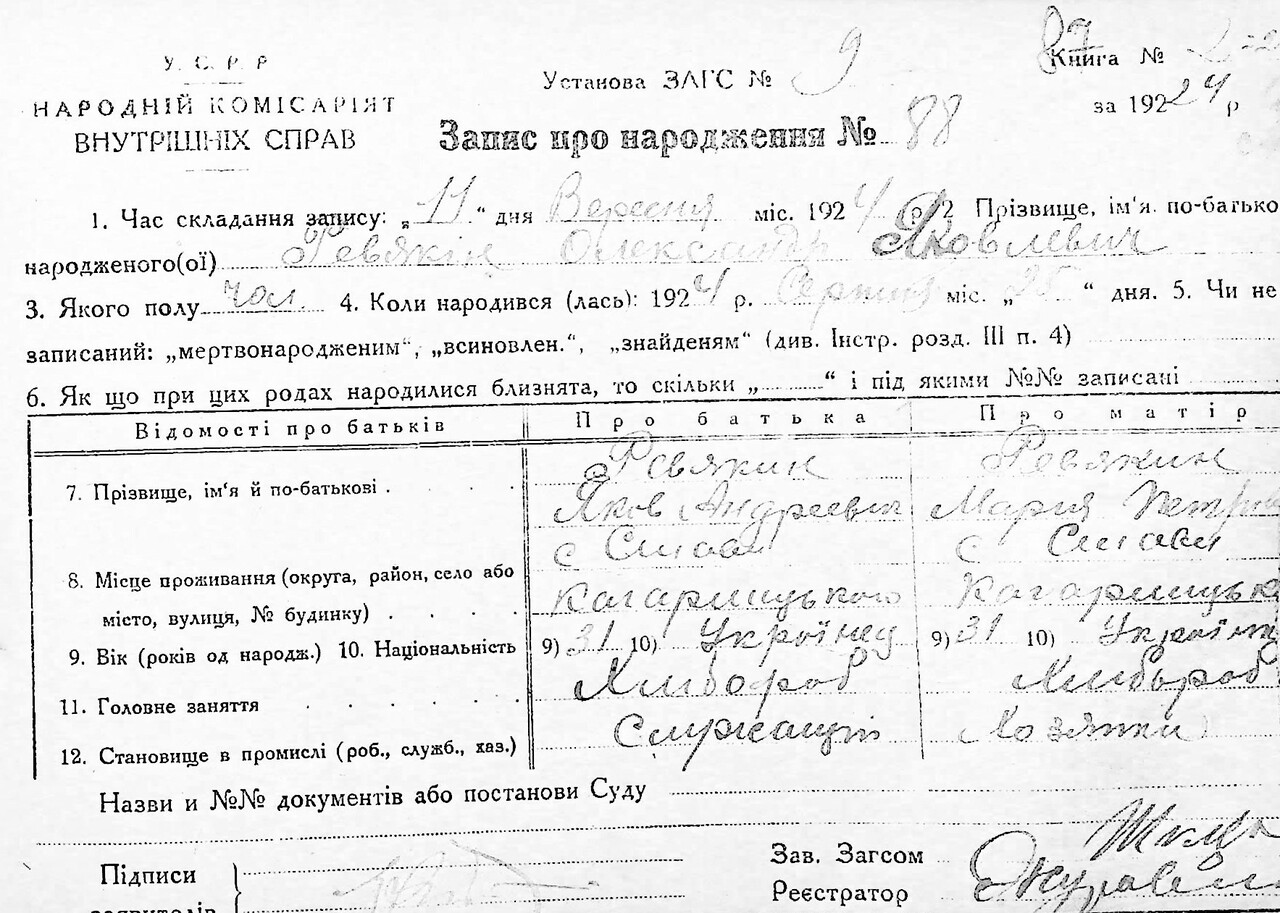 У. С. Р. Р
НАРОДНІЙ КОМІСАРІЯТ
ВНУТРІШНІХ СПРАВ
Установа ЗАГС № 9
87
Книга № 2
за 1924 р
Запис про народження № 88
1. Час складання запису: „11“ дня Вересня міс. 1924 р. 2 Прізвище, ім'я. по-батькові
народженого(ої) Ревякін Олександр Яковлевич
3. Якого полу чол. 4. Коли народився (лась): 1924 р. Серпня міс. „25“ дня. 5. Чи не
записаний: „мертвонародженим“, „всиновлен.“, „знайденям“ (див. Інстр. розд. III п. 4)
6. Як що при цих родах народилися близнята, то скільки „ “ і під якими №№ записані
Відомості про батьків Про батька Про матір
7. Прізвище, ім'я й по-батькові . Ревякин Ревякин
Яков Андреевич Мария
с с
8. Місце проживання (округа, район, село або
місто, вулиця, № будинку) . Кагарлицького
9. Вік (років од народж.) 10. Національність 9) 31 10) Українец 9) 31 10)
11. Головне заняття Хлибороб Хлибороб
12. Становище в промислі (роб., служб., хаз.) Служащий Хозяйки
Назви и №№ документів або постанови Суду
Підписи
заявителів
Зав. Загсом
Реєстратор